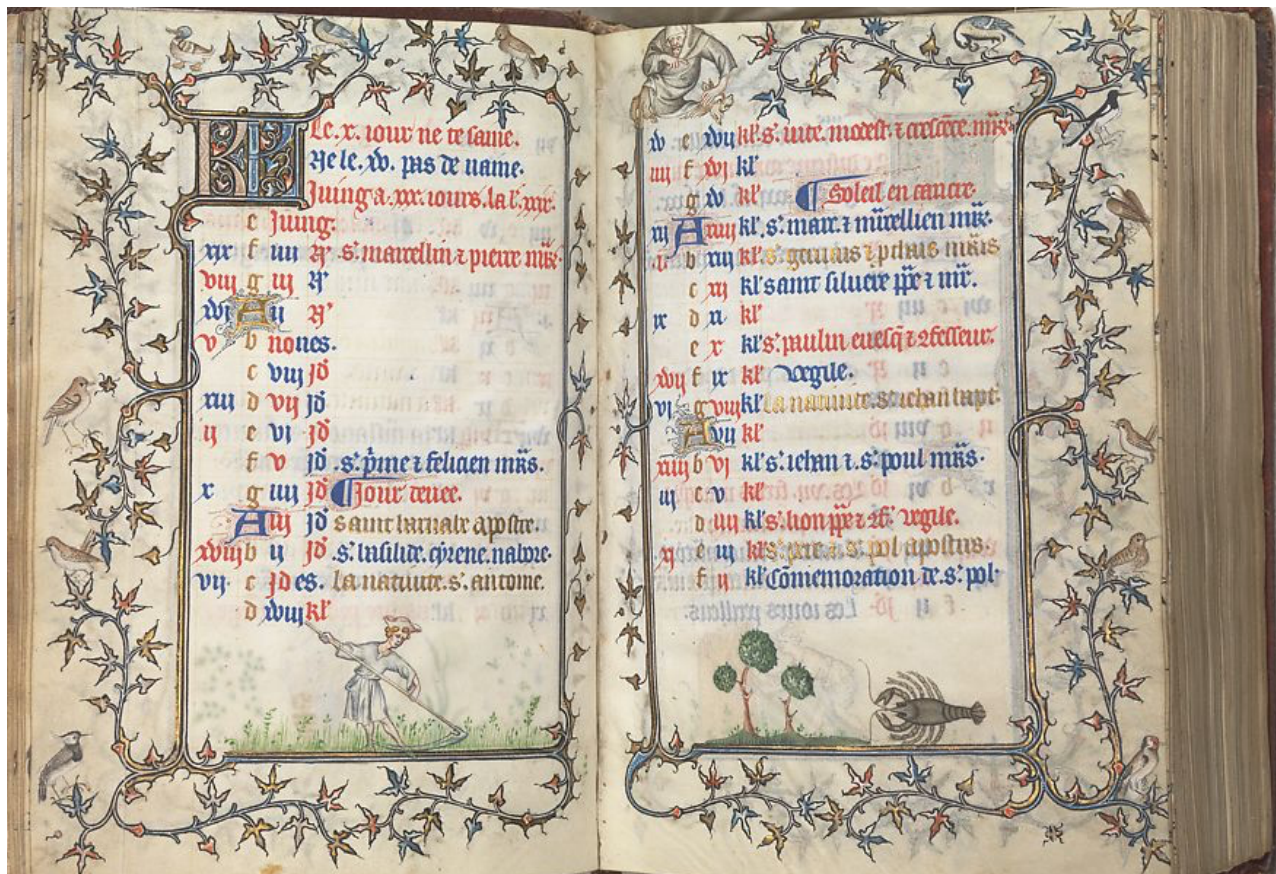 KL Le .x. iour ne te saine.
Ne le .xv. pas de uaine.
Juing a .xxx. iours. la l. .xxix.
e Juing.
xix f iiii N s. marcellin ⁊ pierre
viii g iii N
xvi A ii N
v b nones.
c viii jd
xiii d vii jd
ii e vi jd
f v jd .s. p̃me ⁊ felicien mr̃s.
x g iiii jd
A iii jd saint barnabe apostre.
xviii b ii jd .s. basilide. cyrene. nabore.
vii c jdes. la natiuite .s. antoine.
d xviii kl'
xv e xvii kl' s. uite. modest. ⁊ crescẽce.
iiii f xvi kl'
g xv kl' Soleil en cancre
xii A xiiii kl' .s. marc. ⁊ mr̃cellien
i b xiii kl' s. geruais ⁊ mr̃s
c xii kl' saint siluere
ix d xi kl'
e x kl' s. paulin euesq̃ ⁊
xvii f ix kl' vegile.
vi g viii kl' la natiuite. s. iehan bapt.
A vii kl'
xiiii b vi kl' s. iehan ⁊ .s. poul mr̃s.
iii c v kl'
d iiii kl' s. lion vegile.
xi e iii kl' s. pere. ⁊ s. pol apostres
f ii kl' Cõmemoration de .s. pol.